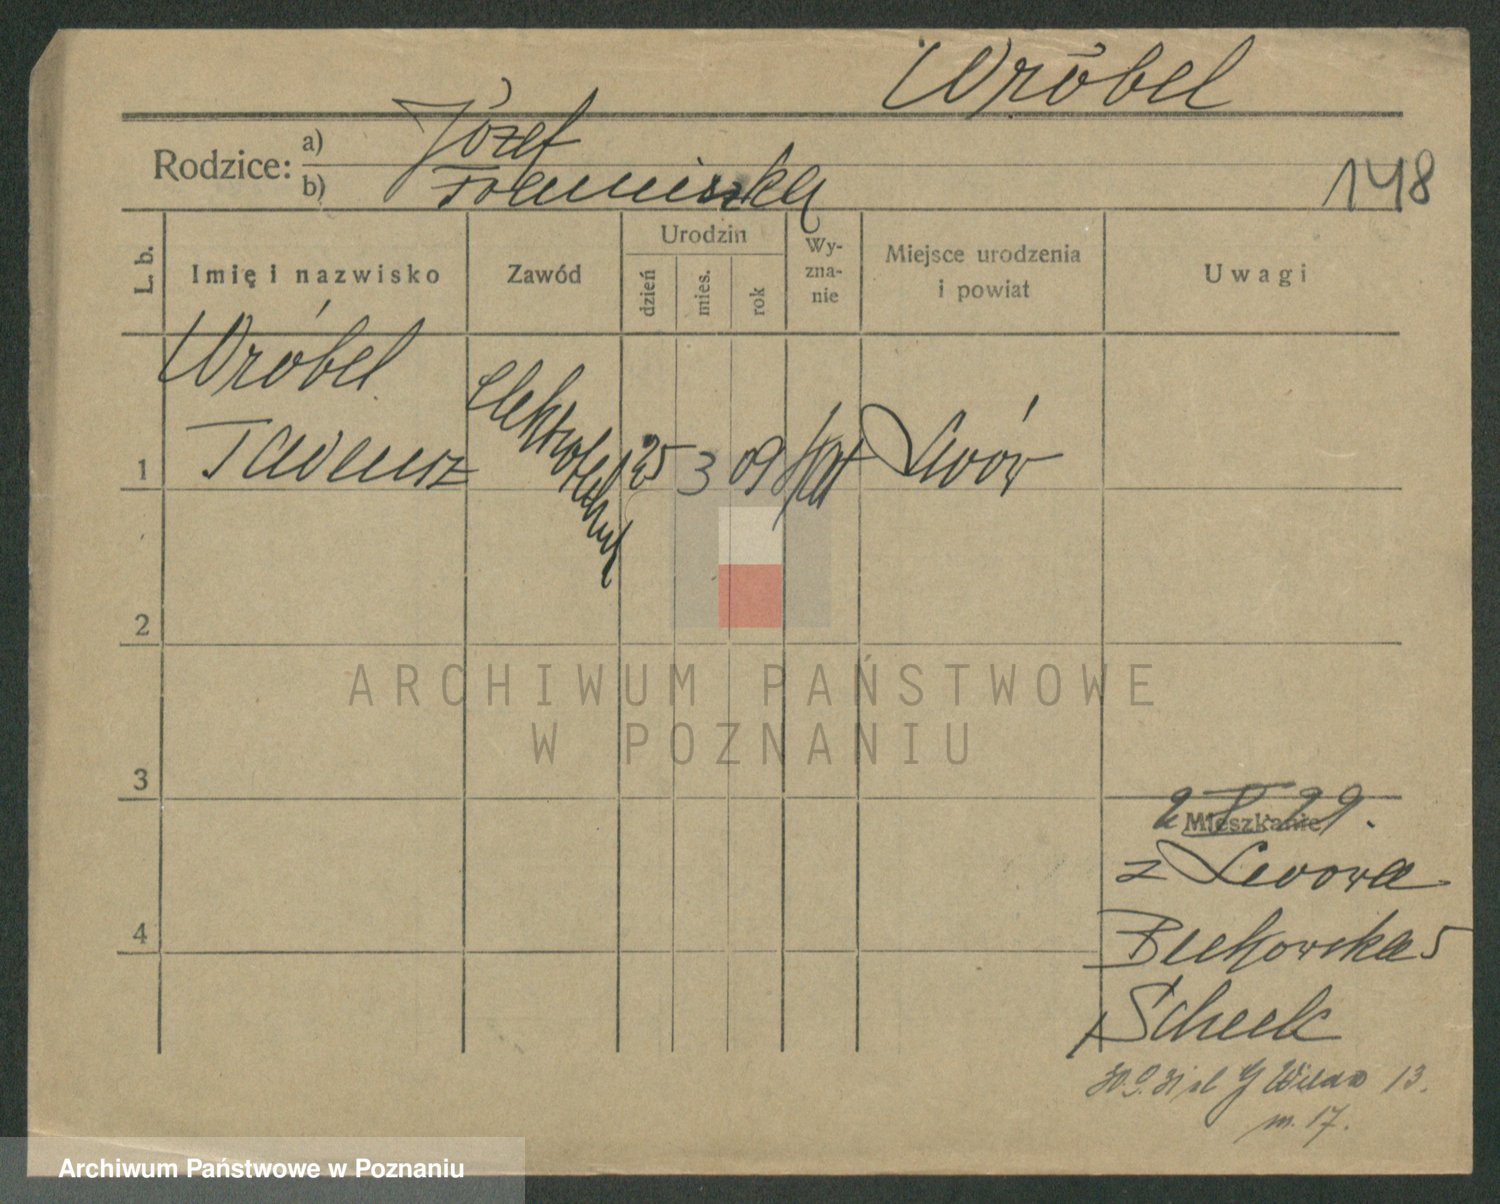 Wróbel
Rodzice:
a) Józef
b) Franciszka
148
L. b.
Imię i nazwisko
Zawód
Urodzin
dzień
mies.
rok
Wy-
zna-
nie
Miejsce urodzenia
i powiat
Uwagi
Wróbel
1 Tadeusz
Elektrotechnik
25 3 09
kat
Lwów
2
3
4
ARCHIWUM PAŃSTWOWE
W POZNANIU
Mieszkanie
29.
z Lwowa
5
Scheek
30.9.31 G Wilda 13.
m. 17.
Archiwum Państwowe w Poznaniu